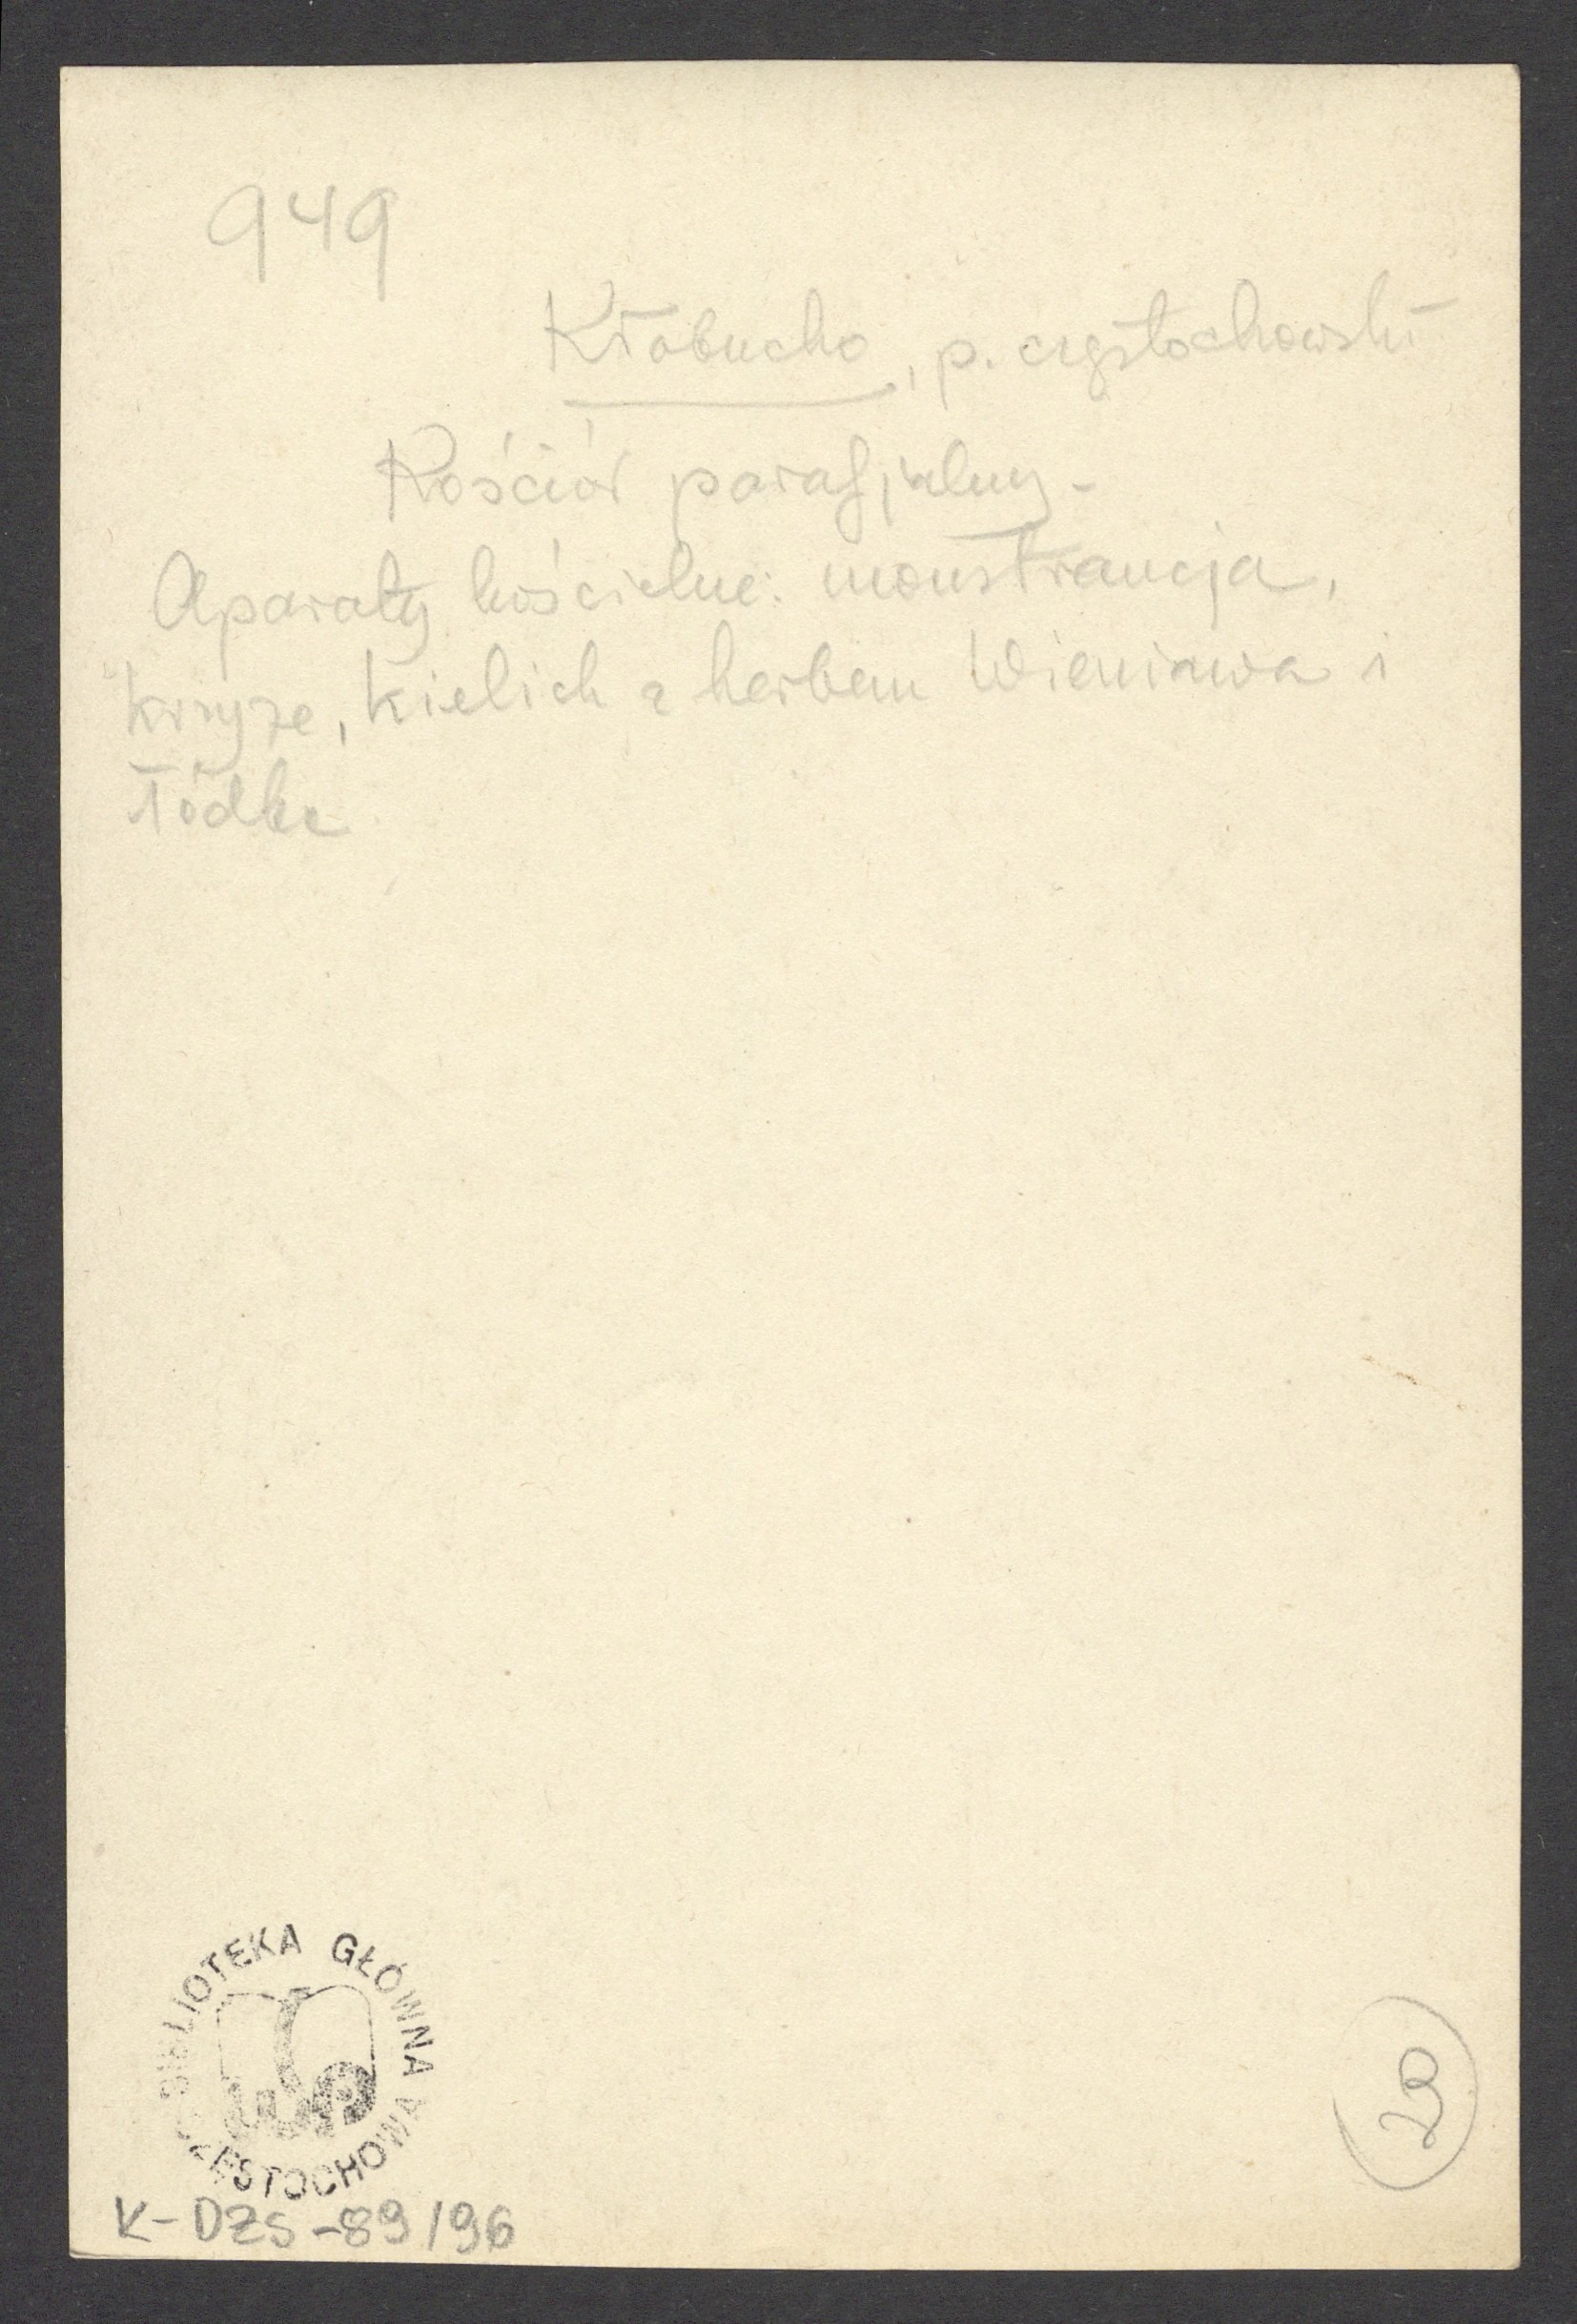 949
Kłobucko, p. częstochowski
Kościół parafjalny -
Aparaty kościelne: monstrancja,
krzyże, kielich z herbem Wieniawa i
łódka
BIBLIOTEKA GŁÓWNA
WSP
CZĘSTOCHOWA
K-DZS-89/96